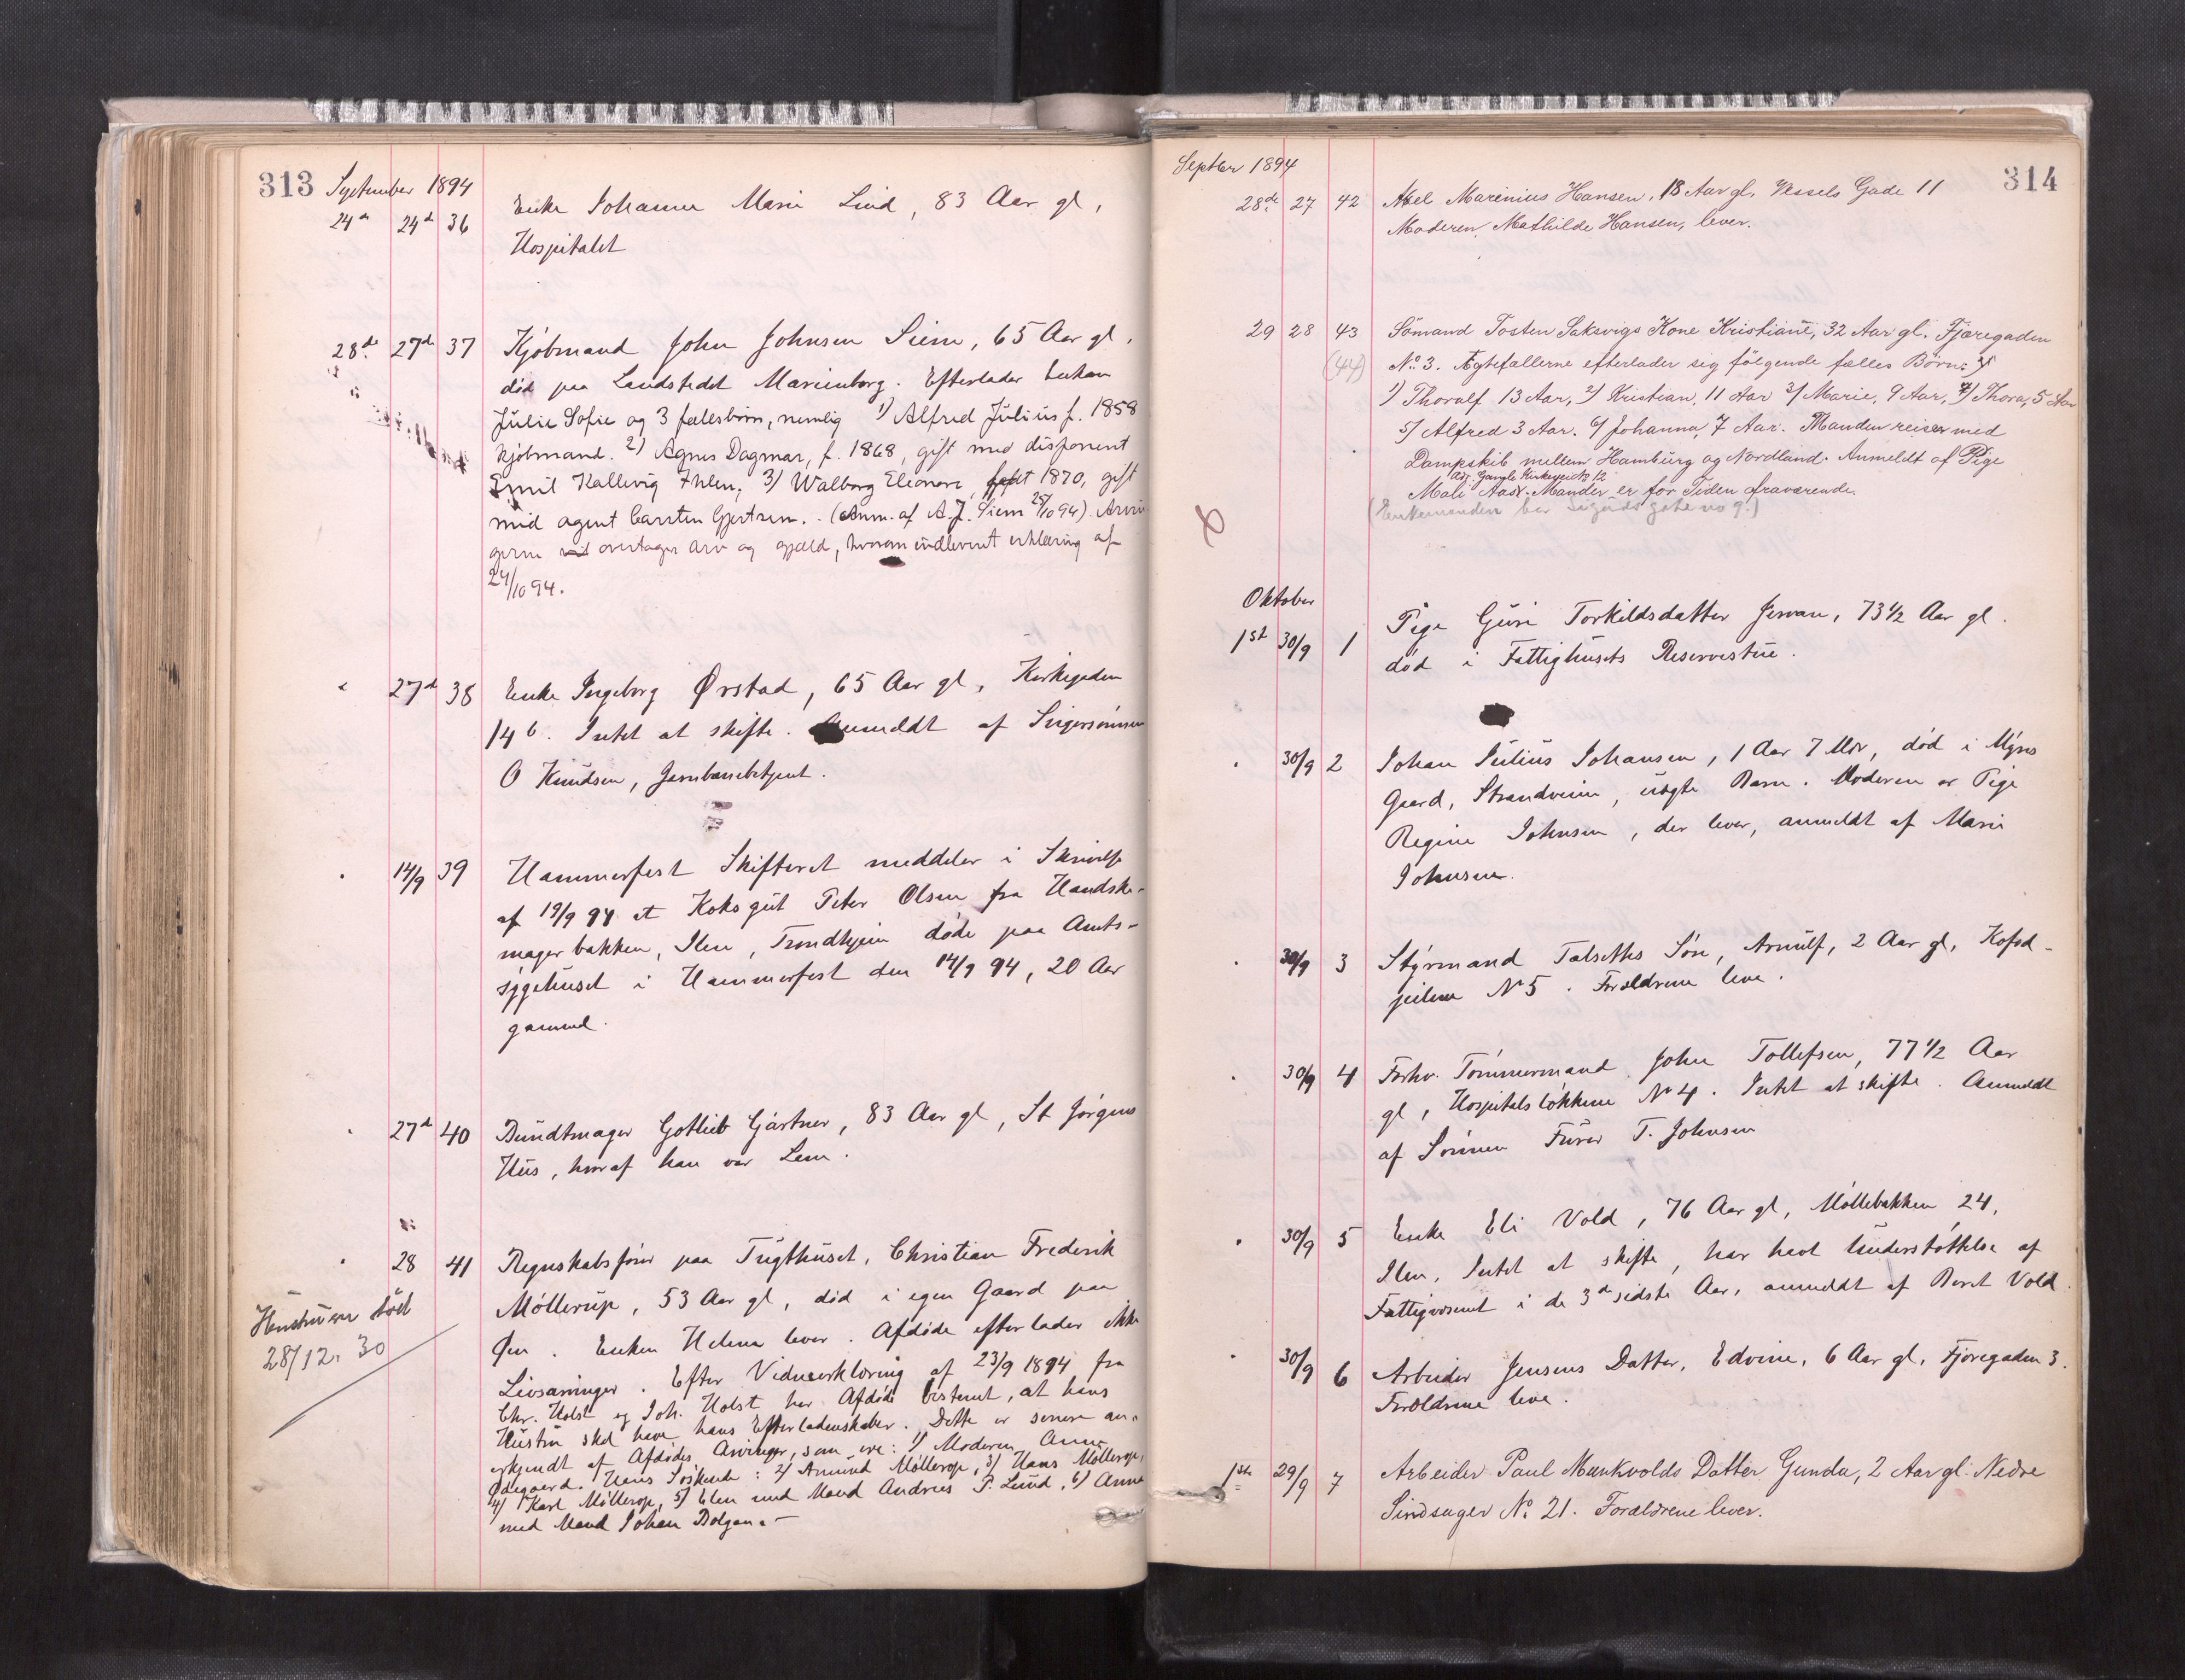 313 September 1894
24de 24d 36 Enke Johanne Marie Lind, 83 Aar gl,
Hospitalet
28d. 27d 37 Kjöbmand John Johnsen Siem, 65 Aar gl,
död paa Landstedet Marienborg. Efterlader Enken
Julie Sofie og 3 fællesbörn, nemlig 1) Alfred Julius f. 1858
kjöbmand. 2) Agnes Dagmar, f. 1868, gift med disponent
Emil Kallevig Ihlen, 3) Walborg Eleonore, født 1870, gift
med agent Carsten Gjertsen. - (Anm. af A. J. Siem 25/10 94). Arvin-
gerne overtager arv og gjæld, hvorom indleveret erklæring af
24/10 94.
" 27d 38 Enke Ingeborg Ørstad, 65 Aar gl, Kirkegaden
14 b. Intet at skifte. Anmeldt af Svigersönnen
O Knudsen, Jernbanebetjent.
" 14/9 39 Hammerfest Skifteret meddeler i Skrivelse
af 19/9 94 at Koksgut Peter Olsen fra Handske-
magerbakken, Ilen, Trondhjem døde paa Amts-
sygehuset i Hammerfest den 14/9 94, 20 Aar
gammel.
" 27d 40 Bundtmager Gotlieb Gärtner, 83 Aar gl, St Jörgens
Hus, hvoraf han var Lem.
" 28 41 Regnskabsförer paa Tugthuset, Christian Frederik
Möllerup, 53 Aar gl, död i egen Gaard paa
Øen. Enken Helene lever. Afdöde efterlader ikke
Livsarvinger. Efter Vidneerklæring af 23/9 1894 fra
Chr. Holst og Joh. Holst har Afdöde bestemt, at hans
Hustru skal have hans Efterladenskaber. Dette er senere an-
erkjendt af Afdödes Arvinger, som ere: 1) Moderen Anne
Ødegaard. Hans Söskende: 2) Amund Möllerop, 3) Hans Möllerop,
4) Karl Möllerop, 5) Elen med Mand Andreas P. Lund, 6) Anne
med Mand Johan Bolgen. -
Hustruen död
28/12. 30
Septber 1894 314
28de 27 42 Axel Marenius Hansen, 18 Aar gl. Vessels Gade 11
Moderen, Mathilde Hansen, lever.
29 28 43 Sömand Tosten Saksvigs Kone Kristiane, 32 Aar gl. Fjæregaden
(44) No. 3. Ægtefallerne efterlader sig fölgende fælles Börn:
1) Thoralf 13 Aar, 2) Kristian, 11 Aar 3) Marie, 9 Aar, 4) Thora, 5 Aar
5) Alfred 3 Aar. 6) Johanna, 7 Aar. Manden reiser med
Dampskib mellem Hamburg og Nordland. Anmeldt af Pige
Adr. Gamle Kirkegt No 12
Mali Aas. Manden er for Tiden fraværende.
(Enkemanden bor Sigurdsgate no 9.)
Oktober
1st 30/9 1 Pige Guri Torkildsdatter Jervan, 73 1/2 Aar gl.
död i Fattighusets Reservestue.
" 30/9 2 Johan Julius Johansen, 1 Aar 7 Mdr, død i Myrs
Gaard, Strandveien, uägte Barn. Moderen er Pige
Regine Johnsen, der lever, anmeldt af Marie
Johnsen.
" 30/9 3 Styrmand Talseths Sön, Arnulf, 2 Aar gl,
No 5. Forældrene leve.
" 30/9 4 Forhv. Tömmermand John Tollefsen, 77 1/2 Aar
gl, Hospitalslökkene No 4. Intet at skifte. Anmeldt
af Sönnen Furer T. Johnsen
" 30/9 5 Enke Eli Vold, 76 Aar gl, Möllebakken 24,
Ilen. Intet at skifte, har havt Understöttelse af
Fattigvæsenet i de 3de sidste Aar, anmeldt af Beret Vold.
" 30/9 6 Arbeider Jensens Datter, Edvine, 6 Aar gl, Fjæregaden 3.
Forældrene leve.
1ste 29/9 7 Arbeider Paul Munkvolds Datter Gunda, 2 Aar gl. Nedre
Sindsager No. 21. Forældrene lever.